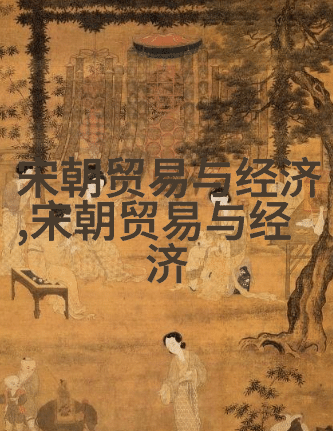 宋朝贸易与经济
,宋朝贸易与经
济